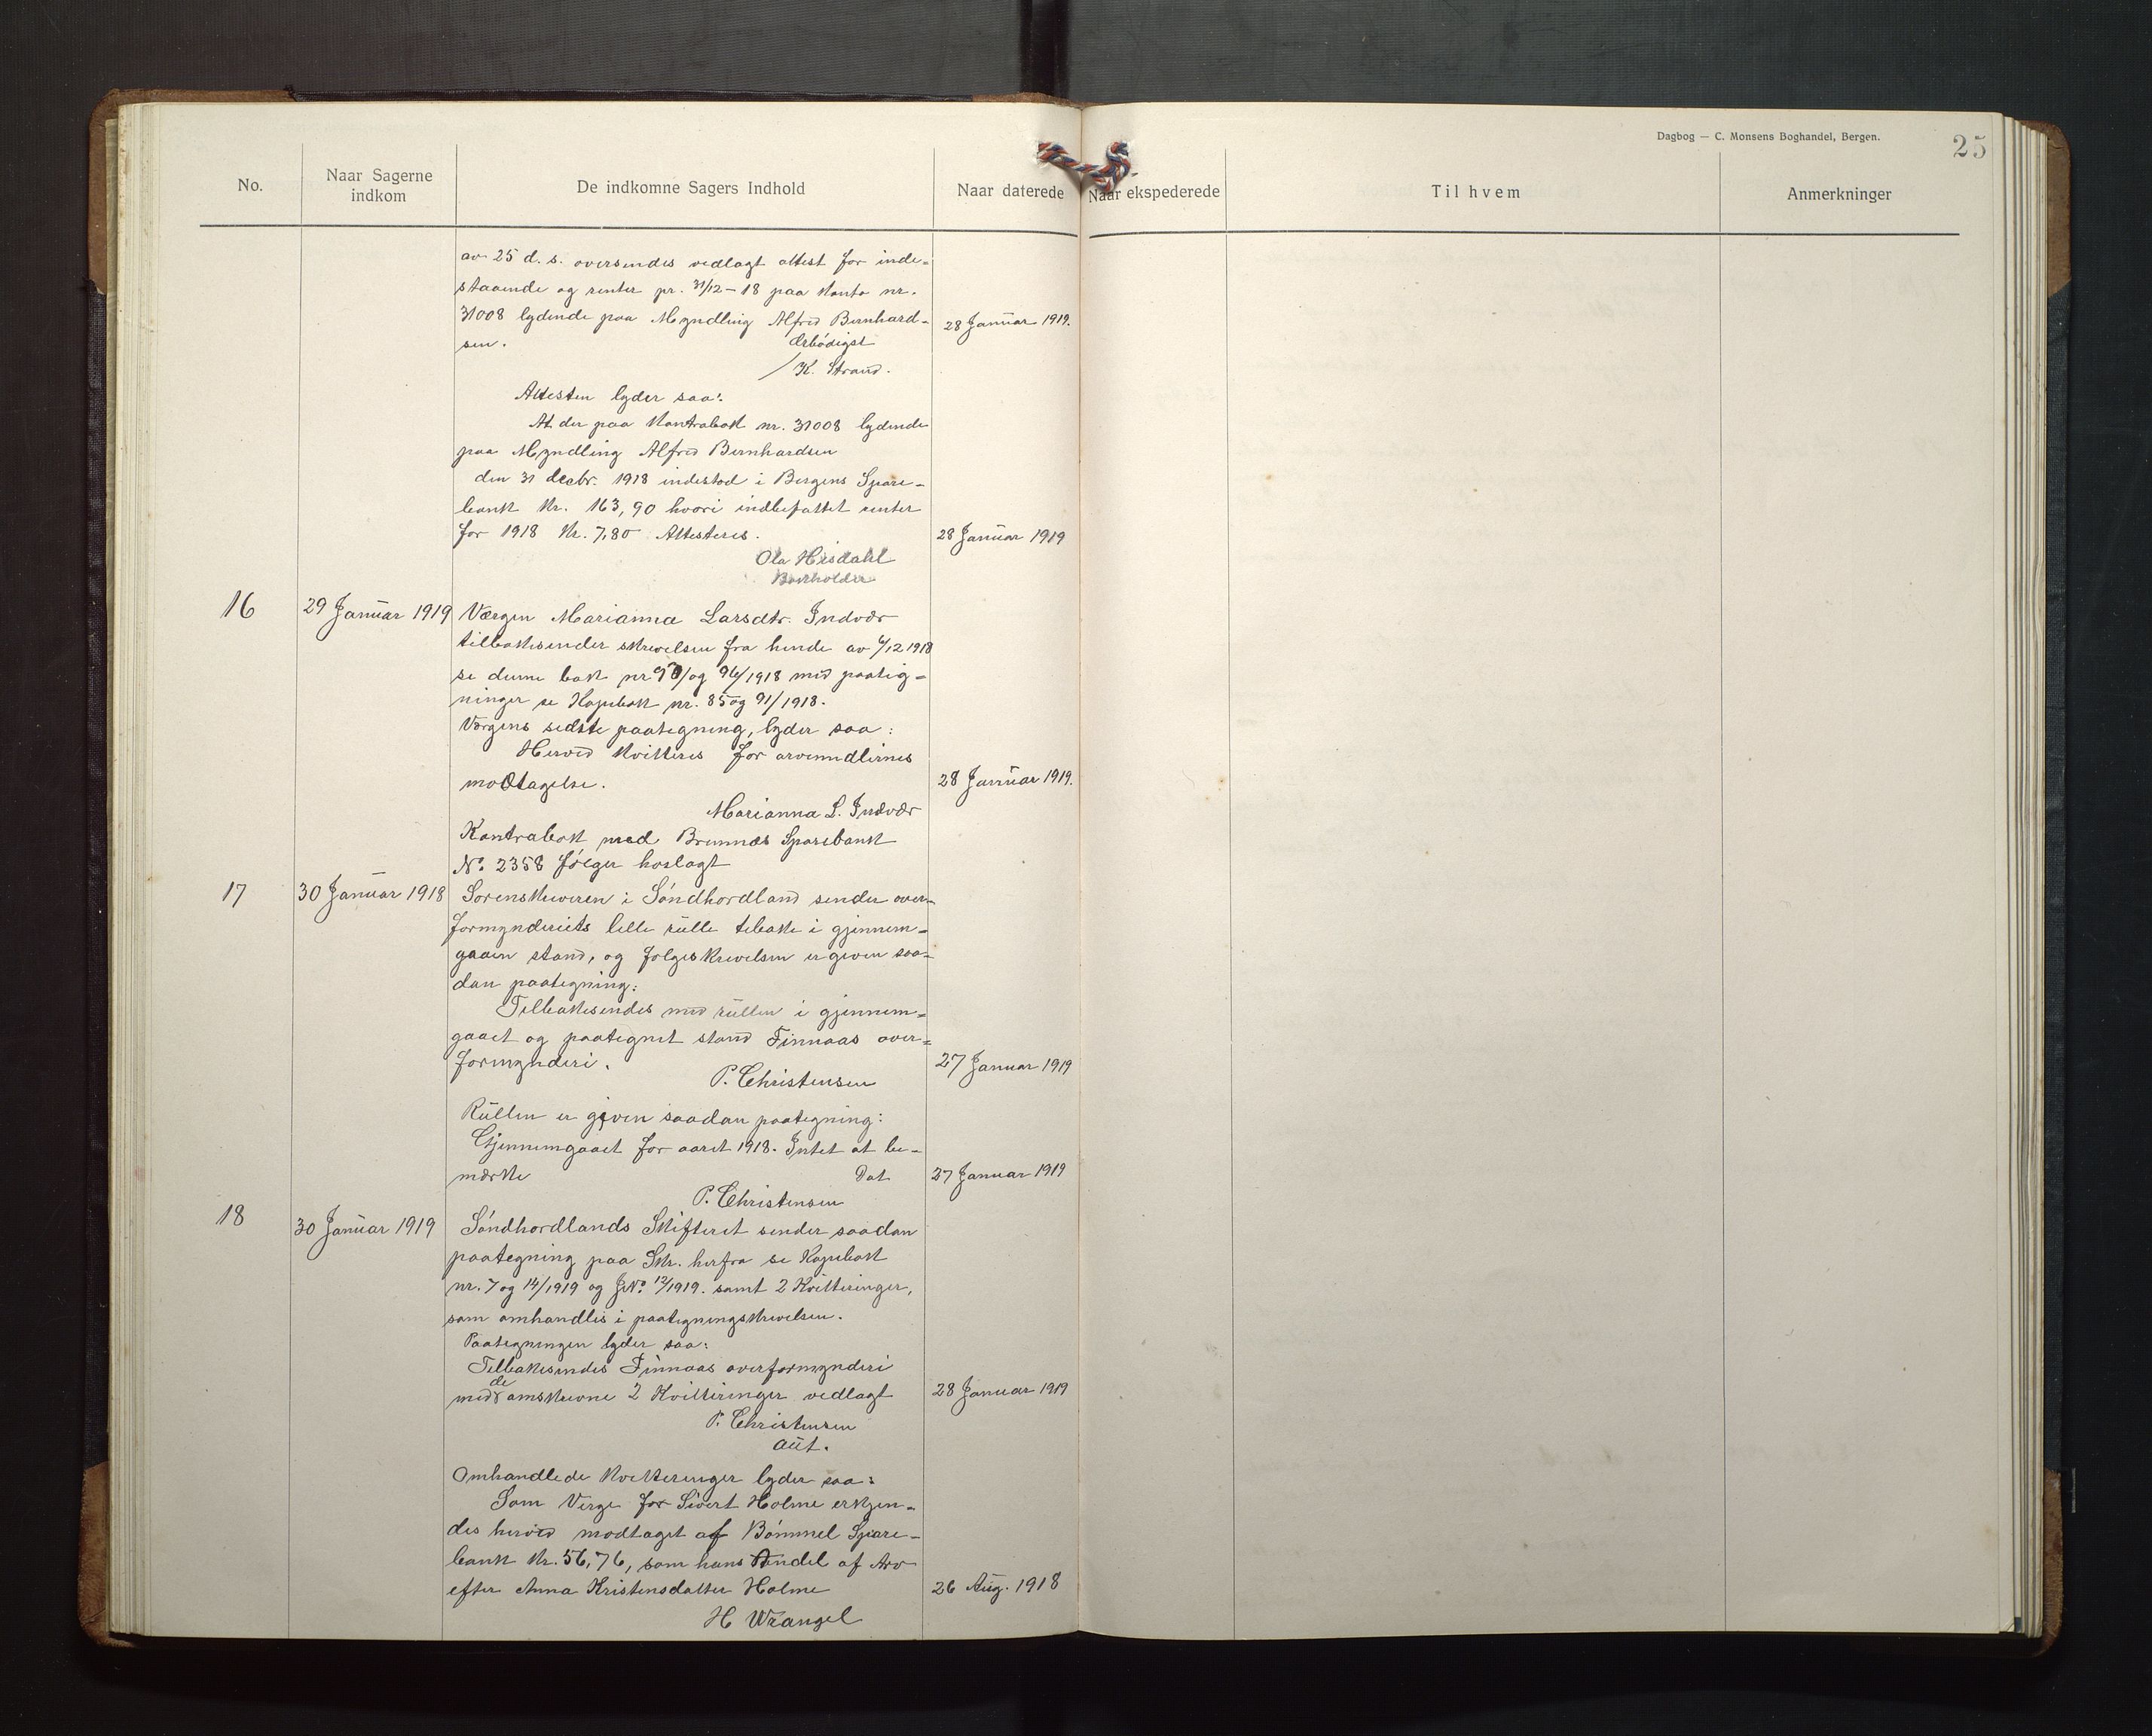 Dagbog — C. Monsens Boghandel, Bergen.
25
No.
Naar Sagerne indkom
De indkomne Sagers Indhold
Naar daterede
Naar ekspederede
Til hvem
Anmerkninger
av 25 d. s. oversendes vedlagt attest for inde-
staaende og renter pr. 31/12-18 paa Konto nr.
31008 lydende paa Myndling Alfred Bernhard-
28 Januar 1919.
sen. Ærbödigst
/K. Strand.
Attesten lyder saa:
At der paa Kontrabok nr. 31008 lydende
paa Myndling Alfred Bernhardsen
den 31 decbr. 1918 indestod i Bergens Spare-
bank Kr. 163,90 hvori indbefattet renter
for 1918 Kr. 7,80 Attesteres.
28 Januar 1919
Ola Hisdahl
Bokholder
16
29 Januar 1919
Værgen Marianna Larsdtr. Indvær
tilbakesender skrivelsen fra hende av 6/12 1918
se denne bok nr 90/og 96/1918 med paateg-
ninger se Kopibok nr. 85 og 91/1918.
Værgens sidste paategning, lyder saa:
Herved Kvitteres for arvemidlernes
modtagelse.
28 Januar 1919.
Marianna L. Indvær
Kontrabok med Bremnæs Sparebank
No. 2358 fölger hoslagt
17
30 Januar 1918
Sorenskriveren i Söndhordland sender over-
formynderiets lille rulle tilbake i gjennem-
gaaen stand, og fölgeskrivelsen er given saa-
dan paategning:
Tilbakesendes med rullen i gjennem-
gaaet og paategnet stand Finnaas over-
formynderi.
27 Januar 1919
P. Christensen
Rullen er given saadan paategning:
Gjennemgaaet for aaret 1918. Intet at be-
mærke Dat
27 Januar 1919
P. Christensen
18
30 Januar 1919
Söndhordlands Skifteret sender saadan
paategning paa Skr. herfra se Kopibok
nr. 7 og 14/1919 og JNo. 12/1919. samt 2 Kvitteringer,
som omhandles i paategningskrivelsen.
Paategningen lyder saa:
Tilbakesendes Finnaas overformynderi
med de omskrevne 2 Kvitteringer vedlagt
28 Januar 1919
P. Christensen
aut.
Omhandlede Kvitteringer lyder saa:
Som Verge for Sivert Holme erkjen-
des herved modtaget af Bömmel Spare-
bank Kr. 56,76, som hans Andel af Arv
efter Anna Kristensdatter Holme
26 Aug. 1918
H Wrangel